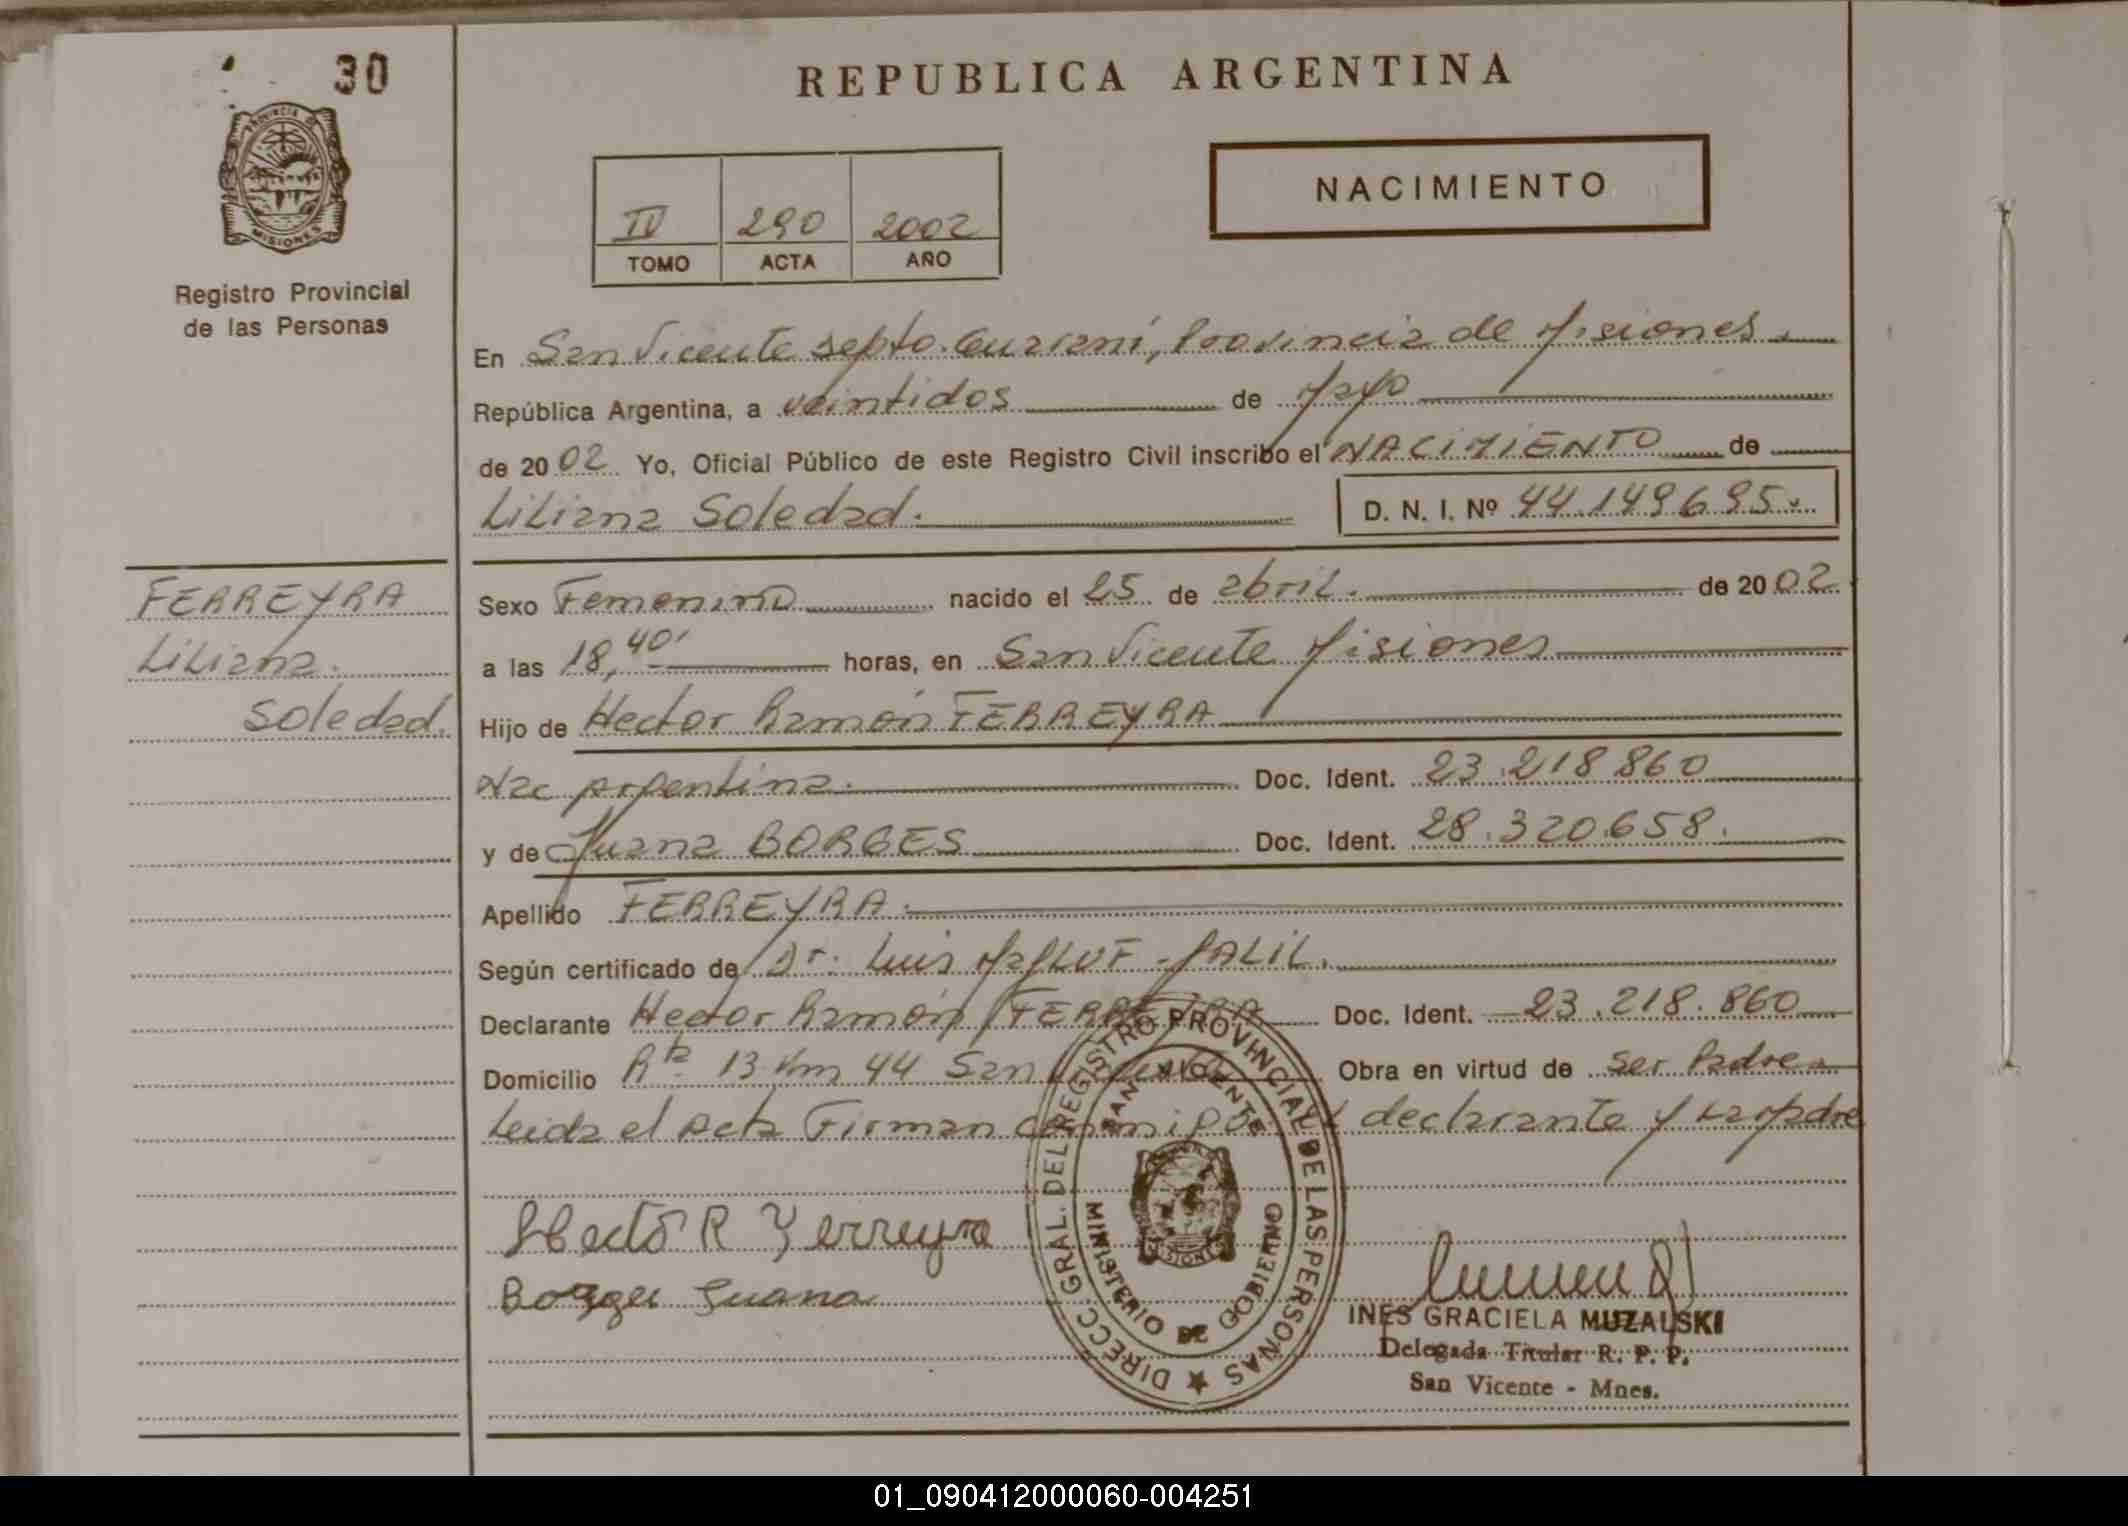 30
REPUBLICA ARGENTINA
NACIMIENTO
IV 290 2002
TOMO ACTA AÑO
PROVINCIA DE MISIONES
Registro Provincial
de las Personas
En San Vicente Depto. Guaraní, Provincia de Misiones.
República Argentina, a veintidos de Mayo
de 2002 Yo, Oficial Público de este Registro Civil inscribo el NACIMIENTO de
Liliana Soledad. D. N. I. Nº 44.149.695.
FERREYRA
Liliana
Soledad.
Sexo Femenino nacido el 25 de abril. de 2002.
a las 18,40' horas, en San Vicente Misiones
Hijo de Hector Ramón FERREYRA
Nac Argentina. Doc. Ident. 23.218.860
y de Juana BORGES Doc. Ident. 28.320.658.
Apellido FERREYRA.
Según certificado de Dr. Luis MaLUF JALIL.
Declarante Hector Ramón FERREYRA Doc. Ident. 23.218.860
Domicilio Rta 13 Km 44 San Vicente Obra en virtud de ser Padre
Leida el acta Firman conmigo el declarante y La Madre
Hector R Ferreyra
Borges Juana
DIRECC. GRAL. DEL REGISTRO PROVINCIAL DE LAS PERSONAS
SAN VICENTE
MISIONES
MINISTERIO DE GOBIERNO
INES GRACIELA MUZALSKI
Delegada Titular R. P. P.
San Vicente - Mnes.
01_090412000060-004251